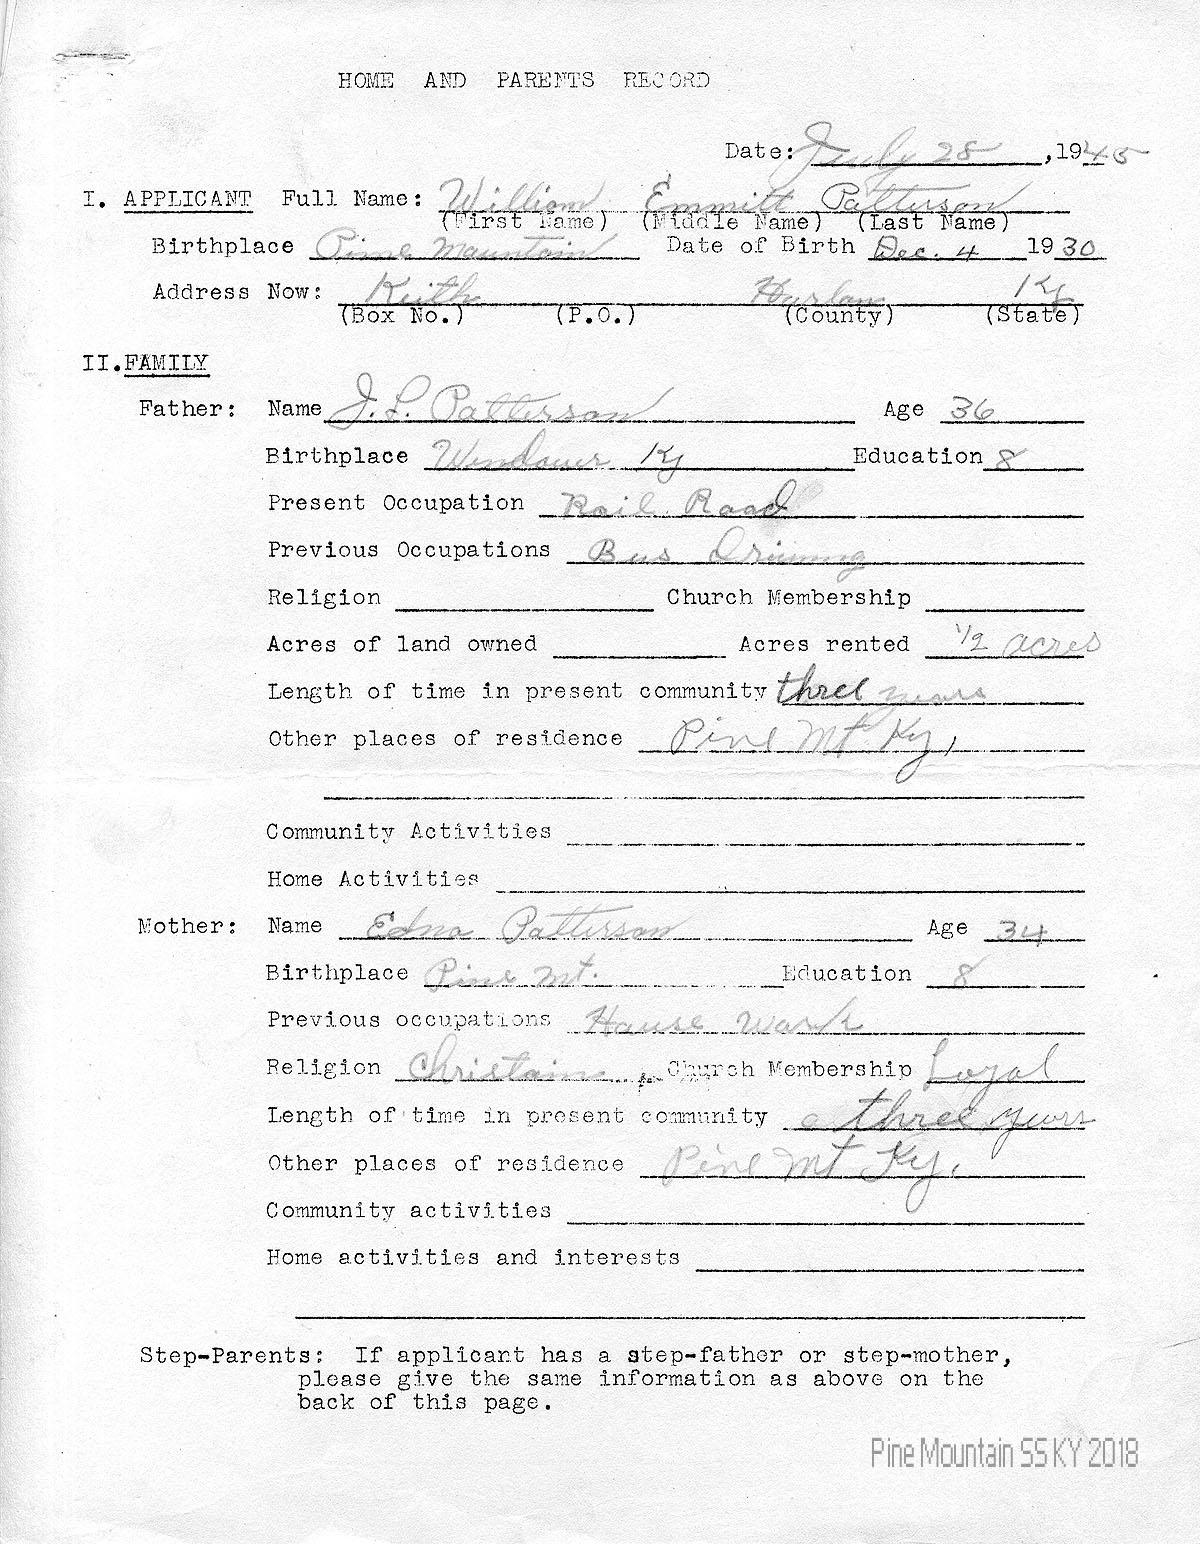 HOME AND PARENTS RECORD
Date: July 28, 1945
I. APPLICANT Full Name: William Emmitt Patterson
(First Name) (Middle Name) (Last Name)
Birthplace Pine Mountain Date of Birth Dec. 4 1930
Address Now: Keith Harlan Ky
(Box No.) (P.O.) (County) (State)
II. FAMILY
Father: Name J. L. Patterson Age 36
Birthplace Wendover Ky Education 8
Present Occupation Rail Road
Previous Occupations Bus Driving
Religion Church Membership
Acres of land owned Acres rented 1/2 acres
Length of time in present community three years
Other places of residence Pine Mt. Ky,
Community Activities
Home Activities
Mother: Name Edna Patterson Age 34
Birthplace Pine Mt. Education 8
Previous occupations House Work
Religion Christain Church Membership Loyal
Length of time in present community three years
Other places of residence Pine Mt Ky,
Community activities
Home activities and interests
Step-Parents: If applicant has a step-father or step-mother,
please give the same information as above on the
back of this page.
Pine Mountain SS KY 2018